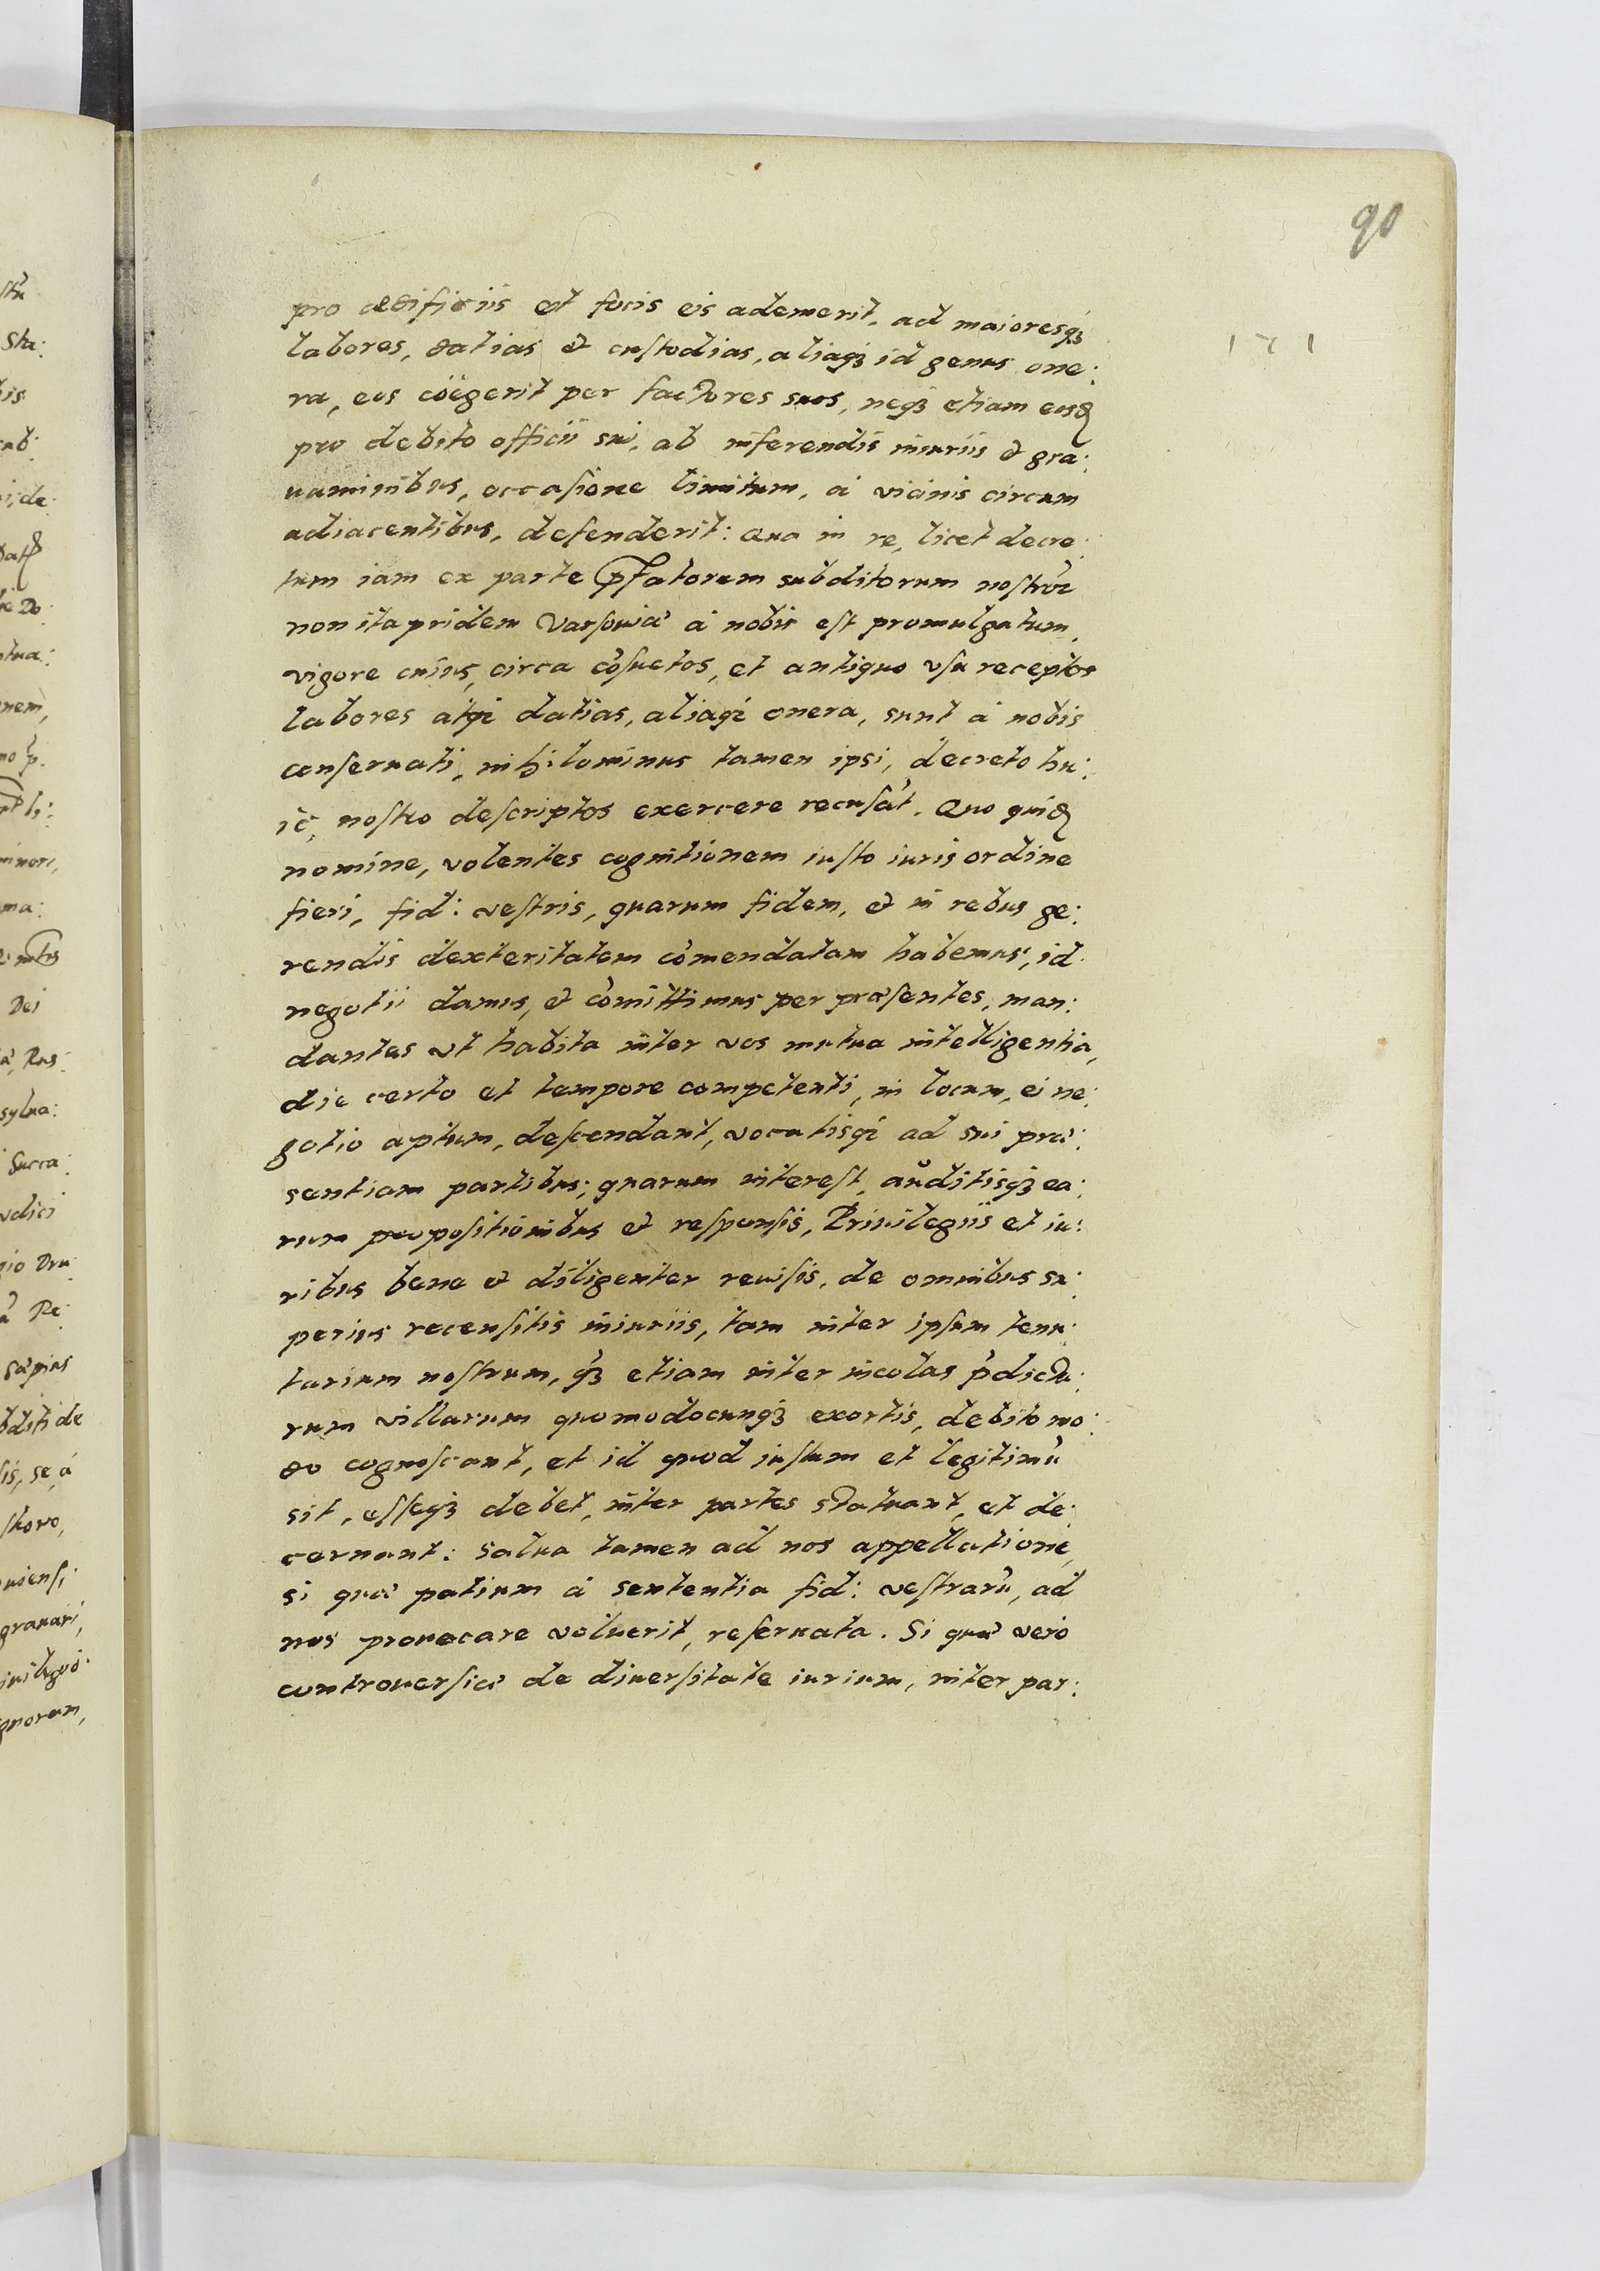 90
171
pro ædificiis et focis eis ademerit, ad maioresqꝫ
labores, datias et custodias, aliaqꝫ id genus one:
ra, eos cöegerit per factores suos, neqꝫ etiam eosđ
pro debito officii sui, ab inferendis iniuriis et gra:
uaminibus, occasione limitum, à vicinis circum
adiacentibus, defenderit: Qua in re, licet decre:
tum iam ex parte pfatorum subditorum nostroꝝ
non ita pridem Varsouiæ à nobis est promulgatum,
vigore cuius, circa cōsuetos, et antiquo vsu receptos
labores atqꝫ datias, aliaqꝫ onera, sunt à nobis
conseruati, nihilominus tamen ipsi, decreto hu:
ic, nostro descriptos exercere recusāt. Quo quiđ
nomine, volentes cognitionem iusto iuris ordine
fieri, fid: vestris, quarum fidem, et in rebus ge:
rendis dexteritatem cōmendatam habemus, id
negotii damus, et cōmittimus per præsentes, man:
dantes vt habita inter vos mutua intelligentia,
die certo et tempore competenti, in locum, ei ne:
gotio aptum, descendant, vocatisqꝫ ad sui præ:
sentiam partibus, quarum interest, auditisqꝫ ea:
rum propositionibus et responsis, Priuilegiis et iu:
ribus bene et diligenter reuisis, de omnibus su:
perius recensitis iniuriis, tam inter ipsum tenu:
tarium nostrum, qꝫ etiam inter incolas p̄dicta:
rum villarum quomodocunqꝫ exortis, debito mo:
do cognoscant, et id quod iustum et legitimū
sit, esseqꝫ debet, inter partes statuant, et de:
cernant: salua tamen ad nos appellatione,
si qua patium à sententia fid: vestrarū, ad
nos prouocare voluerit, reseruata. Si quæ vero
controuersiæ de diuersitate iurium, inter par: